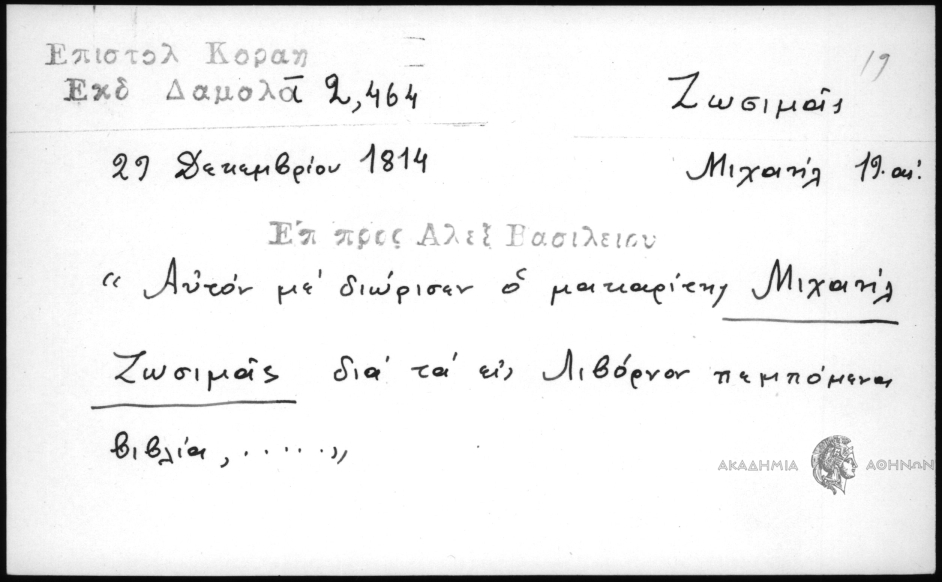 19
Επιστολ Κοραη
Εκδ Δαμαλᾶ 2,464
Ζωσιμᾶς
29 Δεκεμβρίου 1814
Μιχαήλ 19. αἰ.
Επ προς Αλεξ Βασιλειου
“ Αὐτόν μέ διώρισεν ὁ μακαρίτης Μιχαήλ
Ζωσιμᾶς διά τά εἰς Λιβόρνον πεμπόμενα
βιβλία, ....."
ΑΚΑΔΗΜΙΑ ΑΘΗΝΩΝ